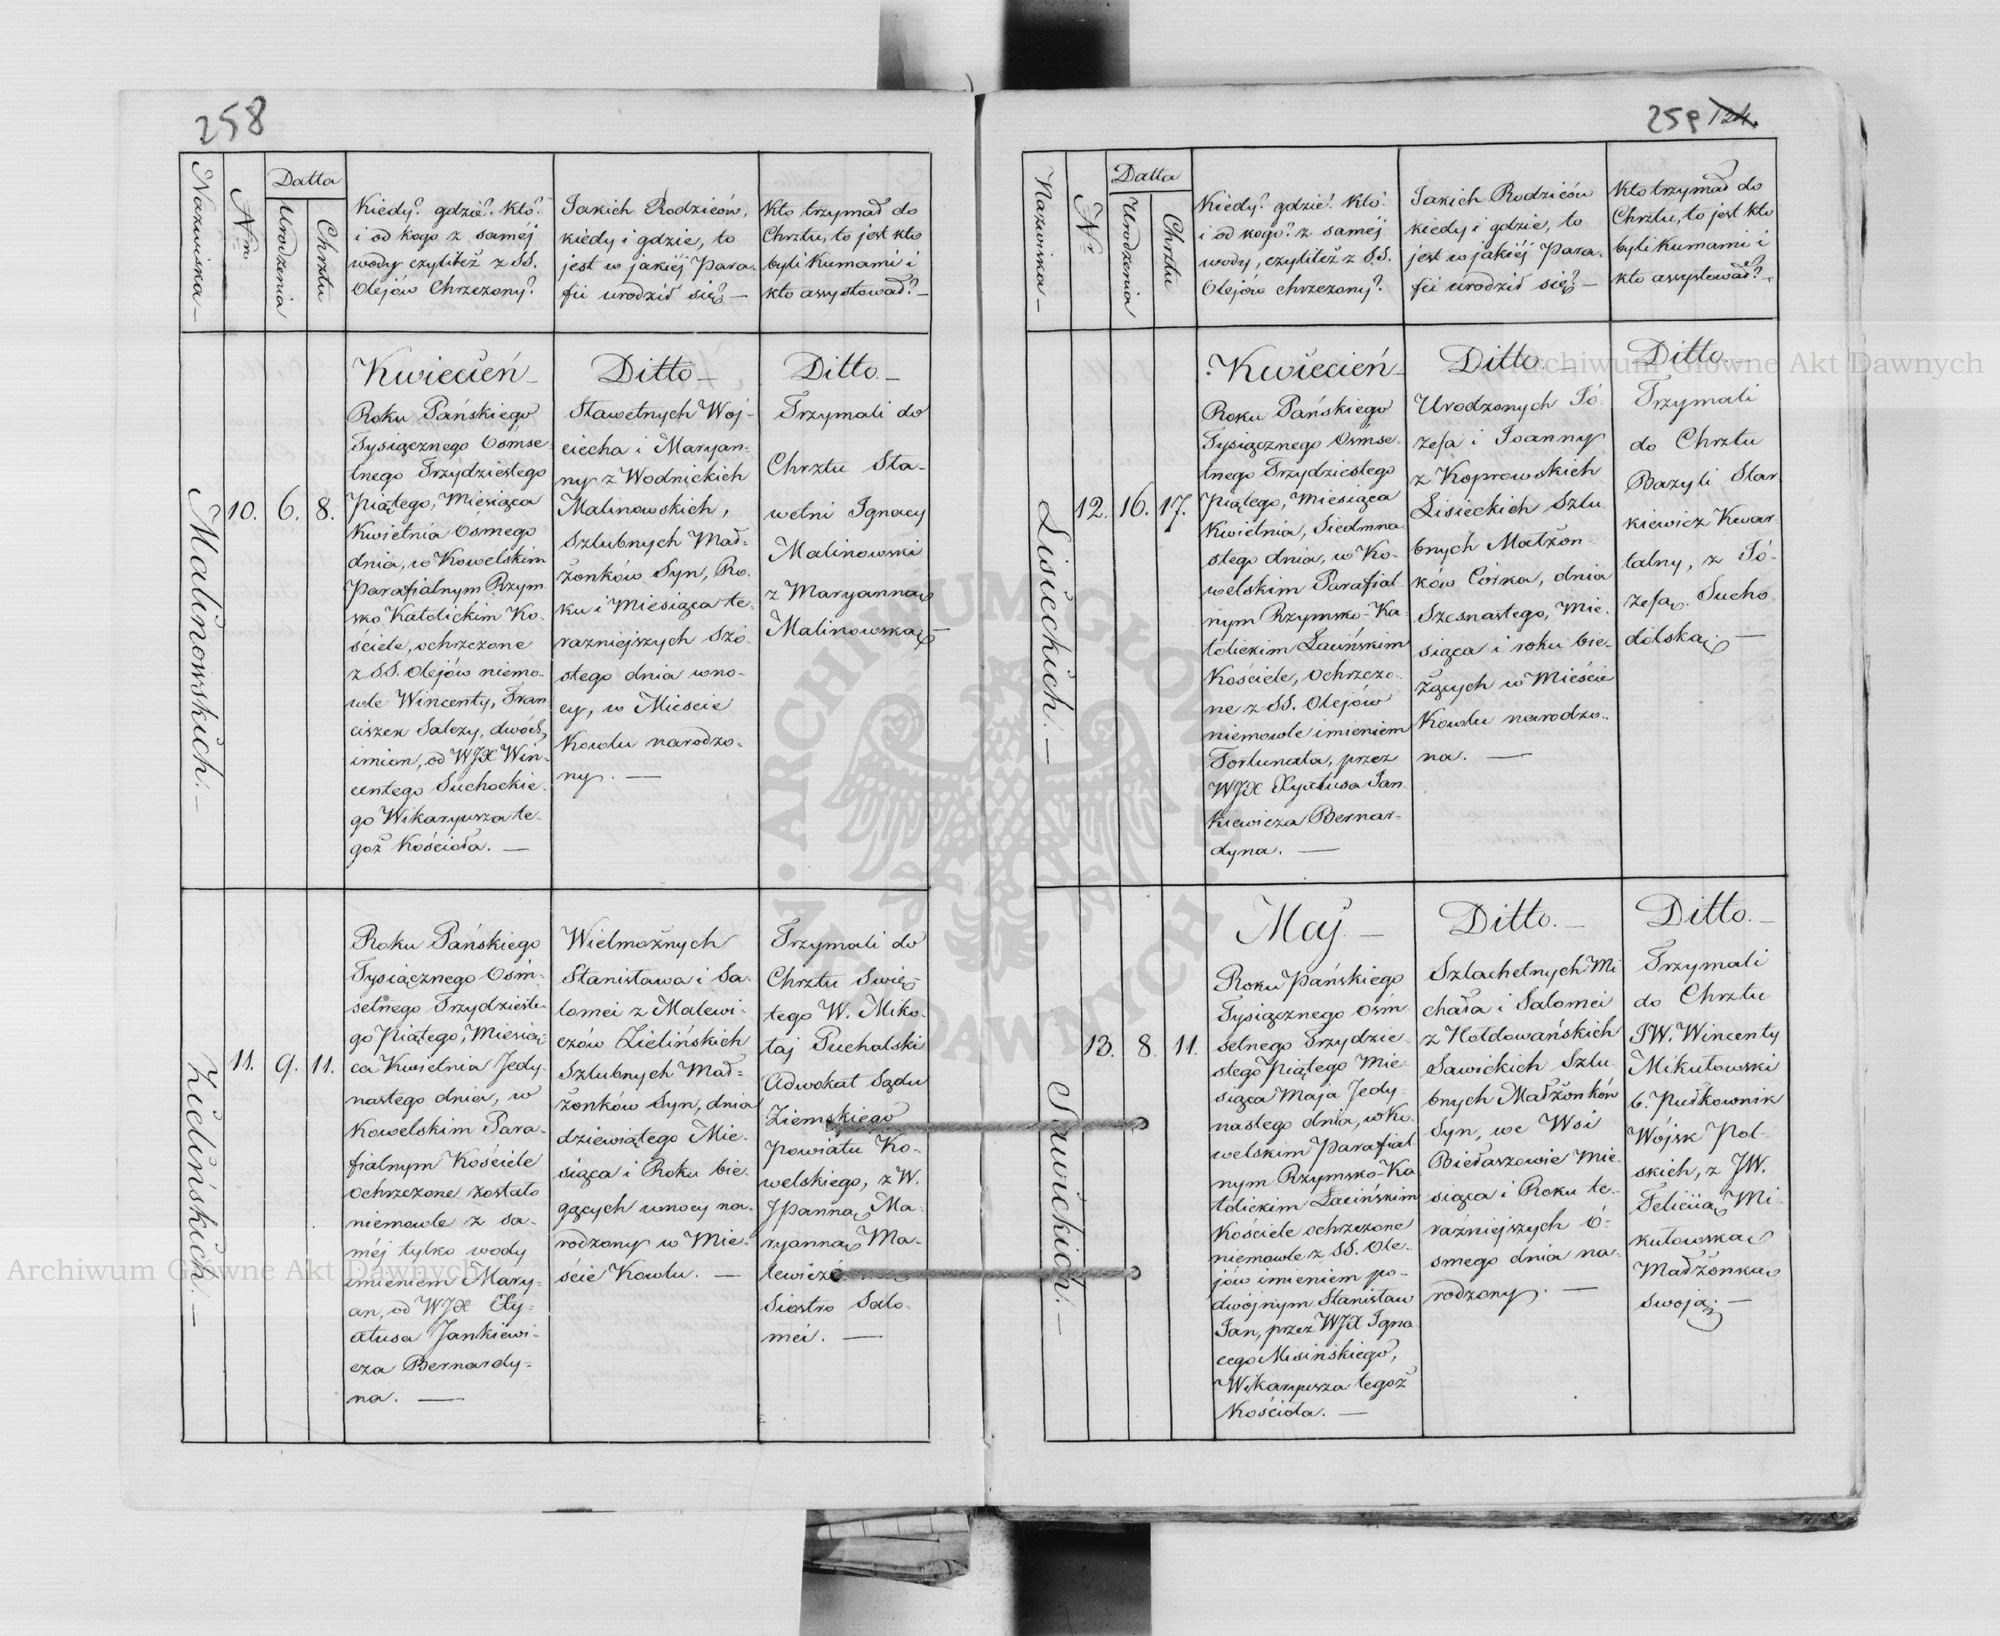 258
Nazwiska —
Nmr.
Datta
Urodzenia
Chrztu
Kiedy? gdzie? kto?
i od kogo z saméj
wody czyliteż z SS.
Olejów Chrzczony?
Jakich Rodziców,
kiedy i gdzie, to
jest w jakiéj Para-
fii urodził się? —
Kto trzymał do
Chrztu, to jest kto
byli Kumami i
kto assystował? —
Malinowskich. —
10.
6.
8.
Kwiecień —
Roku Pańskiego
Tysiącznego Ośmse-
tnego Trzydziestego
Piątego, Miesiąca
Kwietnia Osmego
dnia, w Kowelskim
Parafialnym Rzym-
sko Katolickim Ko-
ściele, ochrzczone
z SS. Olejów niemo-
wle Wincenty, Fran-
ciszek Salezy, dwóch
imion, od WJX Win-
centego Suchockie-
go Wikaryusza te-
goż Kościoła. —
Ditto —
Sławetnych Woj-
ciecha i Maryan-
ny z Wodnickich
Malinowskich,
Szlubnych Mał-
żonków Syn, Ro-
ku i Miesiąca te-
razniejszych Szó-
stego dnia w no-
cy, w Mieście
Kowlu narodzo-
ny. —
Ditto. —
Trzymali do
Chrztu Sła-
wetni Ignacy
Malinowski
z Maryanną
Malinowską —
Zielińskich. —
11.
9.
11.
Roku Pańskiego
Tysiącznego Ośm-
setnego Trzydzieste-
go Piątego, Miesią-
ca Kwietnia Jedy-
nastego dnia, w
Kowelskim Para-
fialnym Kościele
ochrzczone zostało
niemowle z sa-
méj tylko wody
imieniem Mary-
an, od WJX Xy-
xtusa Jankiewi-
cza Bernardy-
na. —
Wielmożnych
Stanisława i Sa-
lomei z Malewi-
czów Zielińskich
Szlubnych Mał-
żonków Syn, dnia
dziewiątego Mie-
siąca i Roku bie-
gących w nocy na-
rodzony w Mie-
ście Kowlu. —
Trzymali do
Chrztu Swię-
tego W. Miko-
łaj Puchalski
Adwokat Sądu
Ziemskiego
Powiatu Ko-
welskiego, z W.
JPanną Ma-
ryanną Ma-
lewiczó
Siostro Salo-
mei. —
259 124.
Nazwiska —
Nr
Datta
Urodzenia
Chrztu
Kiedy? gdzie? kto?
i od kogo? z saméj
wody, czyliteż z S.S.
Olejów chrzczony?
Jakich Rodziców
kiedy i gdzie, to
jest w jakiéj Para-
fii urodził się? —
Kto trzymał do
Chrztu, to jest kto
byli Kumami i
kto assystował? —
Lisieckich. —
12.
16.
17.
Kwiecień —
Roku Pańskiego
Tysiącznego Ośmse-
tnego Trzydziestego
Piątego, Miesiąca
Kwietnia, Siedmna-
stego dnia, w Ko-
welskim Parafial-
nym Rzymsko-Ka-
tolickim Łacińskim
Kościele, ochrzczo-
ne z SS. Olejów
niemowle imieniem
Fortunata, przez
WJX Xyxtusa Jan-
kiewicza Bernar-
dyna. —
Ditto. —
Urodzonych Jó-
zefa i Joanny
z Koprowskich
Lisieckich Szlu-
bnych Małżon-
ków Córka, dnia
Szesnastego, Mie-
siąca i roku bie-
żących w Mieście
Kowlu narodzo-
na. —
Ditto. —
Trzymali
do Chrztu
Bazyli Star-
kiewicz Kwar-
talny, z Jó-
zefą Sucho-
dólską. —
Sawickich. —
13.
8.
11.
Maj. —
Roku Pańskiego
Tysiącznego Ośm-
setnego Trzydzie-
stego Piątego Mie-
siąca Maja Jedy-
nastego dnia, w Ko-
welskim Parafial-
nym Rzymsko-Ka-
tolickim Łacińskim
Kościele ochrzczone
niemowle z SS. Ole-
jów imieniem po-
dwójnym Stanisław
Jan, przez WJX Igna-
cego Misińskiego,
Wikaryusza tegoż
Kościoła. —
Ditto. —
Szlachetnych Mi-
chała i Salomei
z Hołdowańskich
Sawickich Szlu-
bnych Małżonków
Syn, we Wsi
Biełaszowie Mie-
siąca i Roku te-
raźniejszych ó-
smego dnia na-
rodzony. —
Ditto. —
Trzymali
do Chrztu
JW. Wincenty
Mikułowski
b. Pułkownik
Wójsk Pol-
skich, z JW.
Felicią Mi-
kułowską
Małżonką
swoją. —
Archiwum Główne Akt Dawnych
Archiwum Główne Akt Dawnych
ARCHIWUM GŁÓWNE AKT DAWNYCH